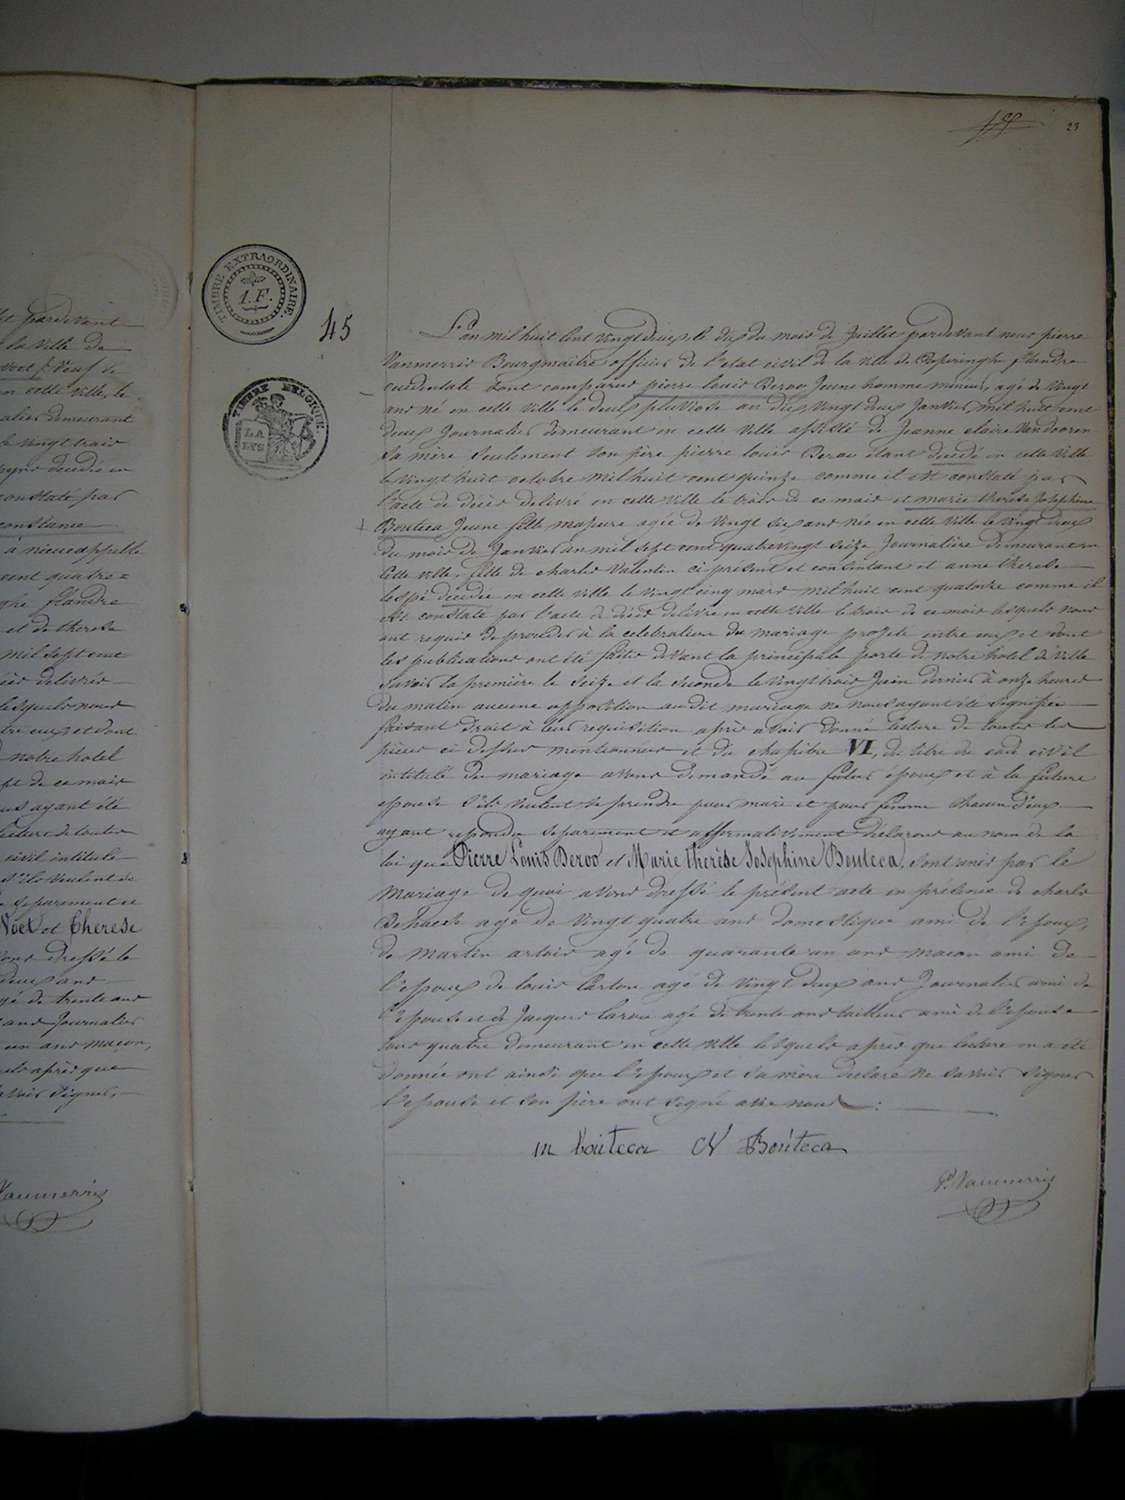 23
TIMBRE EXTRAORDINAIRE.
1.F.
TIMBRE BELGIQUE
LA
LYS
45
L'an mil huit cent vingt deux le dix du mois de Juillet pardevant nous pierre
Vanmerris Bourgmaitre officier de l'etat civil de la ville de Poperinghe flandre
occidentale sont comparus pierre louis Beroo Jeune homme mineur, agé de vingt
ans né en cette ville le deux pluviose an dix vingt deux Janvier mil huit cent
deux Journalier demeurant en cette ville assisté de Jeanne claire Vandooren
sa mère seulement son père pierre louis Beroo étant décédé en cette ville
le vingt huit octobre mil huit cent quinze comme il est constaté par
l'acte de décès delivré en cette ville le trois de ce mois et marie therese Josephine
Bouteca Jeune fille majeure agée de vingt six ans née en cette ville le vingt deux
du mois de Janvier an mil sept cent quatre vingt seize Journalière demeurant en
cette ville, fille de charles Valentin ci présent et consentant et anne therese
lespé décédée en cette ville le vingt cinq mars mil huit cent quatorze comme il
est constaté par l'acte de décès delivré en cette ville le trois de ce mois lesquels nous
ont requis de proceder à la celebration du mariage projeté entre eux et dont
les publications ont été faites devant la principale porte de notre hotel de ville
savoir la première le seize et la seconde le vingt trois Juin dernier à onze heures
du matin aucune opposition au dit mariage ne nous ayant été signifiée
faisant droit à leur requisition après avoir donné lecture de toutes les
pièces ci dessus mentionnées et du chapitre VI, du titre du code civil
intitulé du mariage avons demandé au futur époux et à la future
épouse s'ils veulent se prendre pour mari et pour femme chacun d'eux
ayant repondu separement et affirmativement déclarons au nom de la
loi que Pierre Louis Beroo et Marie therèse Josephine Bouteca, sont unis par le
mariage de quoi avons dressé le présent acte en présence de charles
agé de vingt quatre ans domestique ami de l'epoux,
de martin artois agé de quarante un ans maçon ami de
l'epoux de louis Carton agé de vingt deux ans Journalier ami de
l'epouse et de Jacques agé de trente ans tailleur ami de l'epouse
tous quatre demeurant en cette ville lesquels après que lecture en a été
donnée ont ainsi que l'epoux et sa mère declaré ne savoir signer
l'epouse et son père ont signé avec nous
m bouteca CV Bouteca
P. Vanmerris
pardevant
la ville de
en cette ville, le
demeurant
le vingt trois
décédé en
constaté par
constance
cent quatre =
flandre
et de therese
mil sept cent
delivrés
lesquels nous
eux et dont
notre hotel
de ce mois
ayant été
lecture de toutes
civil intitulé
s'ils veulent se
separement et
Noël et Therese
dressé le
deux ans
de trente ans
ans Journalier
un ans maçon,
après que
savoir signer,
Vanmerris